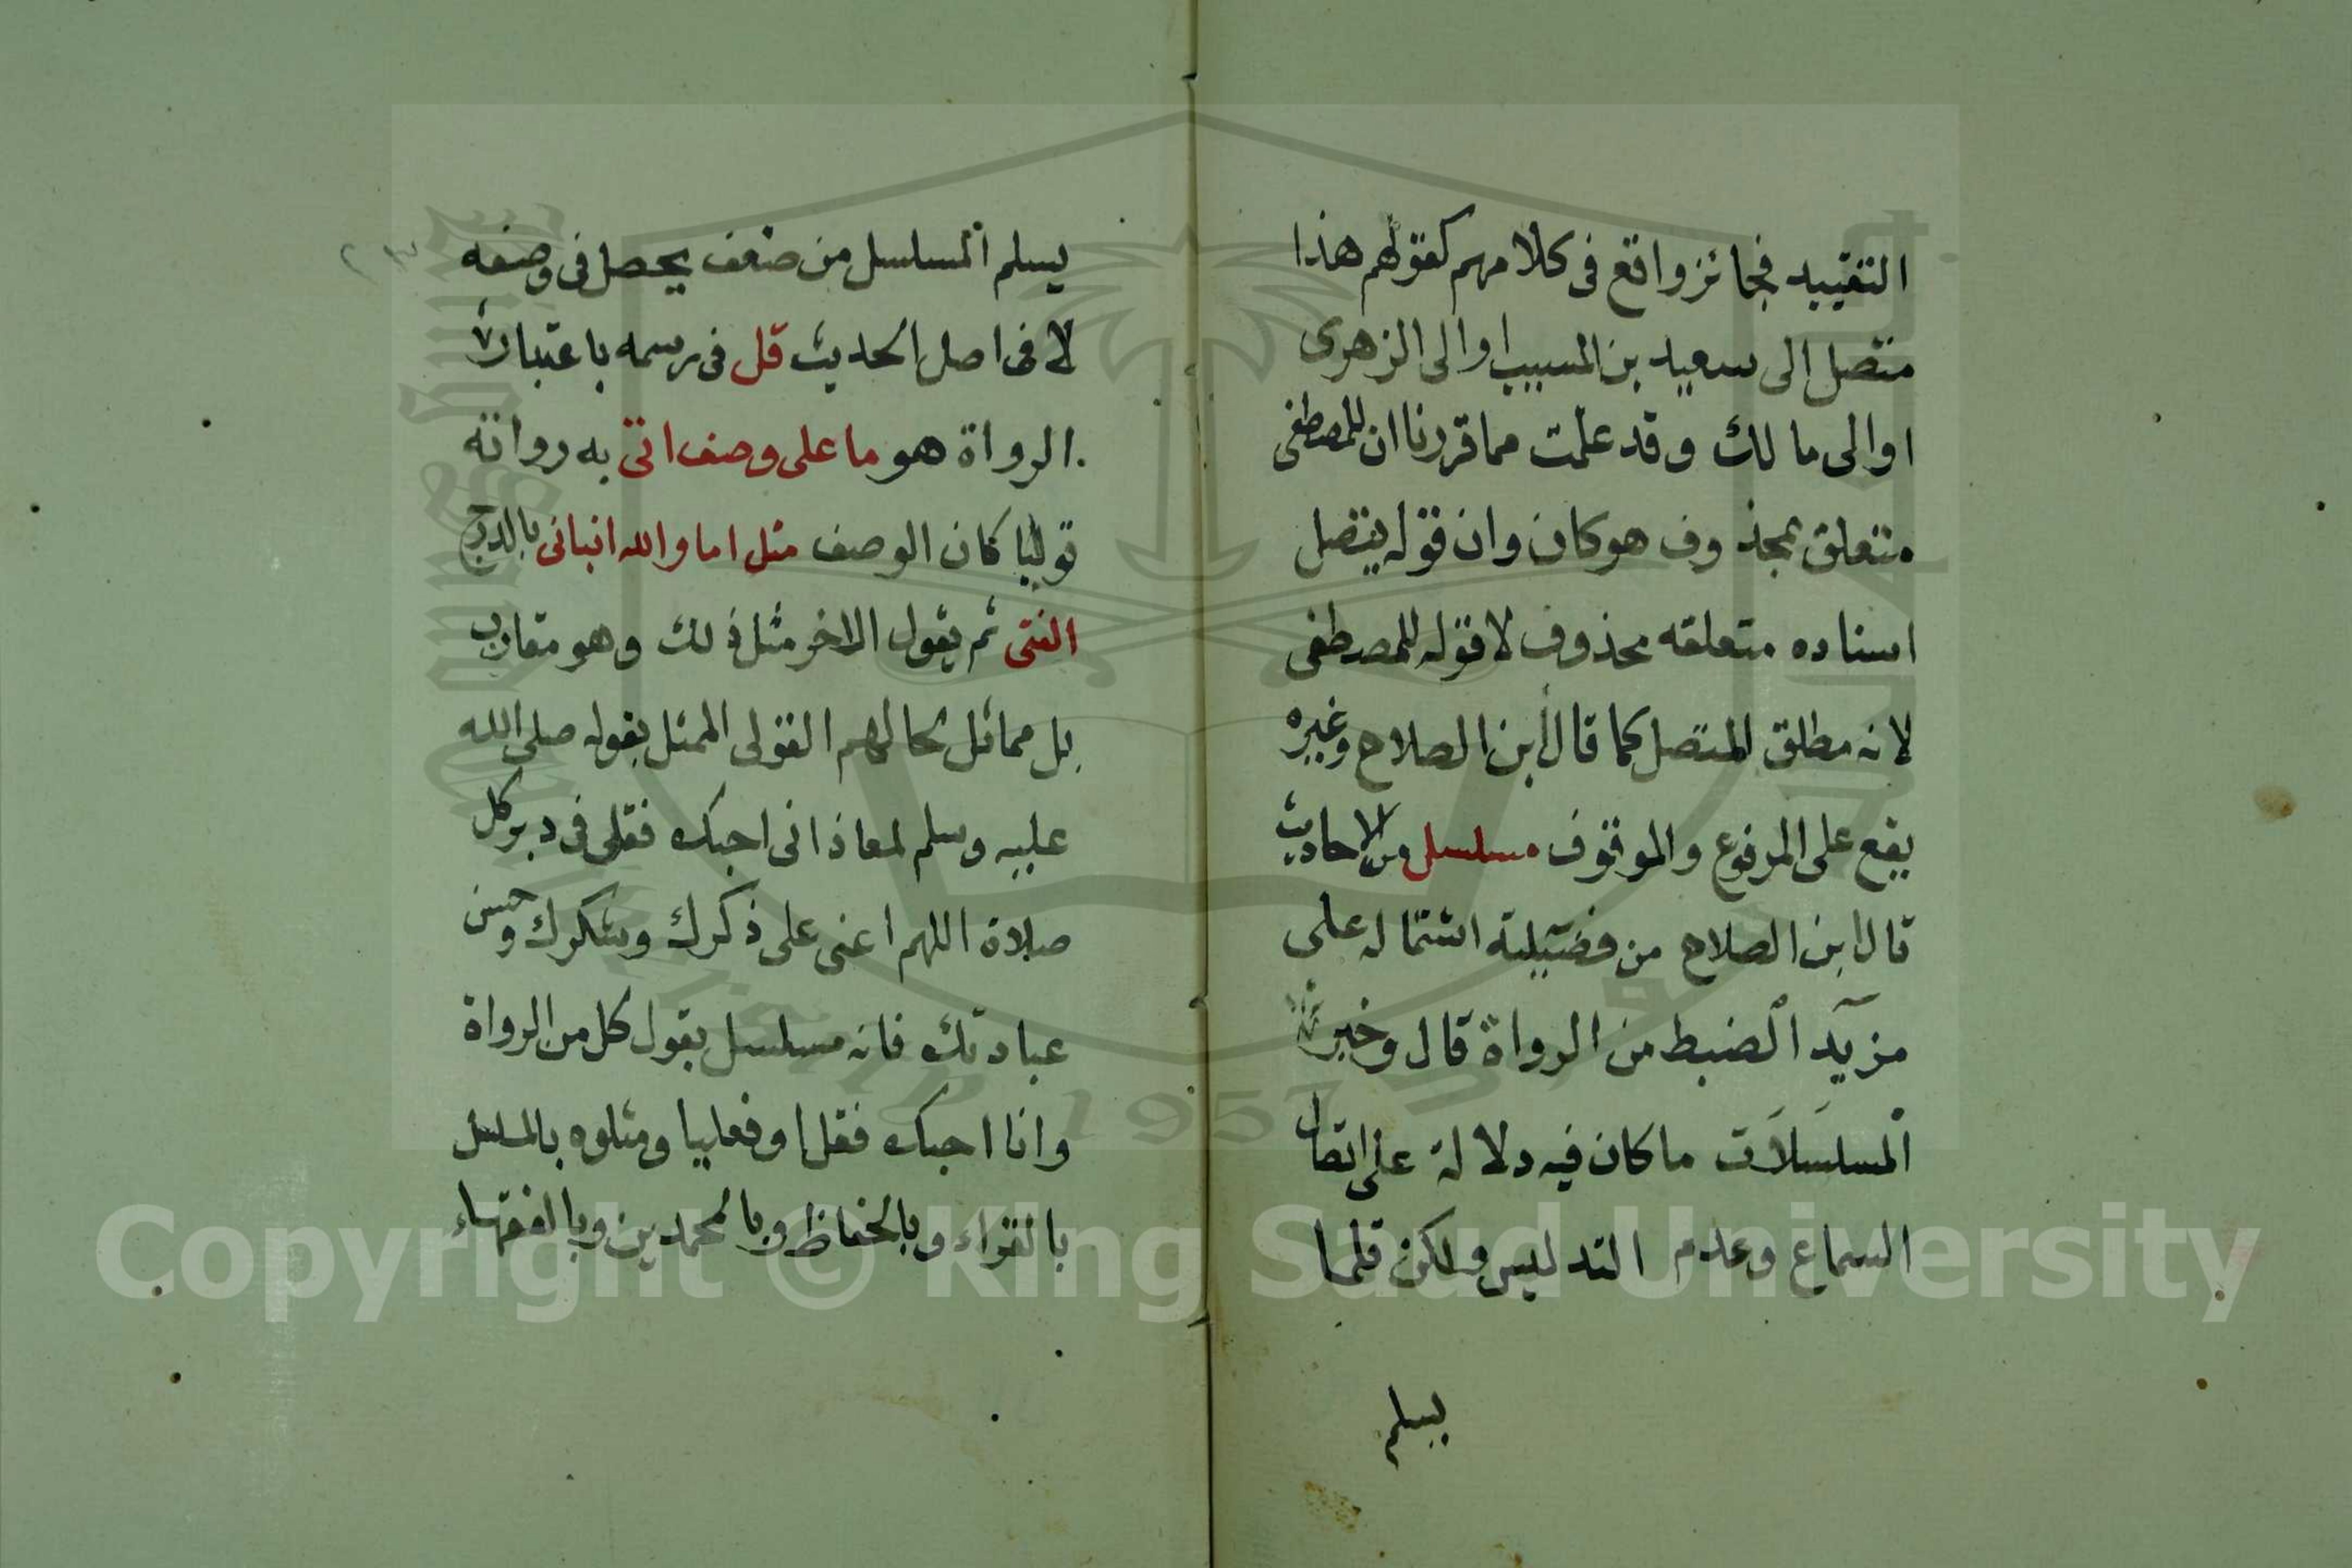 التقييد فجائز واقع فى كلامهم كقولهم هذا
متصل الى سعيد بن المسيب او الى الزهرى
او الى مالك وقد علمت مما قررنا ان للمصطفى
متعلق بمحذوف هو كان وان قوله يتصل
اسناده متعلقه محذوف لا قوله للمصطفى
لانه مطلق المتصل كما قال ابن الصلاح وغيره
يقع على المرفوع والموقوف مسلسل من الاحاديث
قال ابن الصلاح من فضيلته اشتماله على
مزيد الضبط من الرواة قال وخير
المسلسلات ما كان فيه دلالة على اتصال
السماع وعدم التدليس ولكن قلما
يسلم
يسلم المسلسل من ضعف يحصل فى وصفه
لا فى اصل الحديث قل فى رسمه باعتبار
الرواة هو ما على وصف اتى به رواته
قوليا كان الوصف مثل اما والله انبانى بالدرج
الفتى ثم يقول الاخر مثل ذلك وهو مقارب
بل مماثل لحالهم القولى الممثل بقوله صلى الله
عليه وسلم لمعاذ انى احبك فقل فى دبر كل
صلاة اللهم اعنى على ذكرك وشكرك وحسن
عبادتك فانه مسلسل بقول كل من الرواة
وانا احبك فقل او فعليا ومثلوه بالمسلسل
بالقراء وبالحفاظ وبالمحمدين وبالفقهاء
٢٣
Copyright © King Saud University
1957